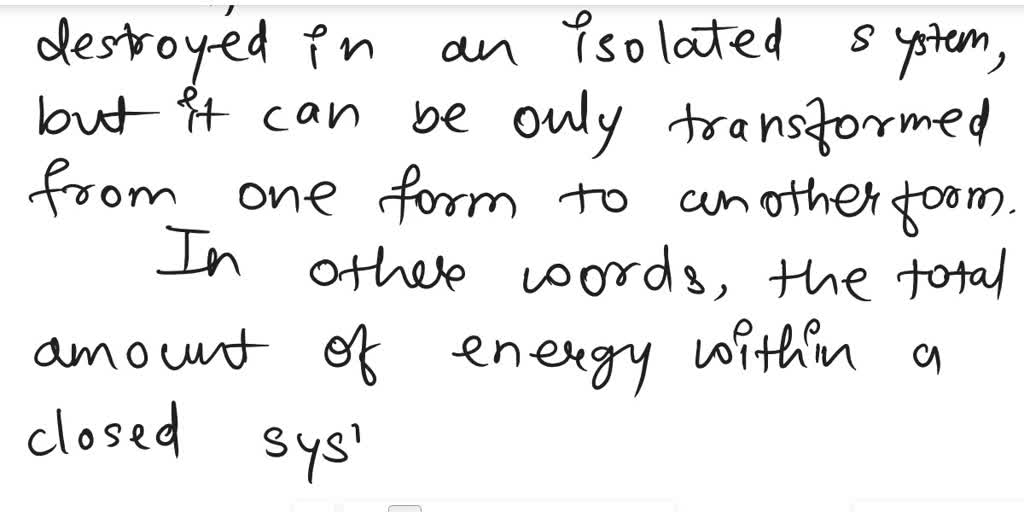 destroyed in an isolated system,
but it can be only transformed
from one form to another form.
In other words, the total
amount of energy within a
closed sys